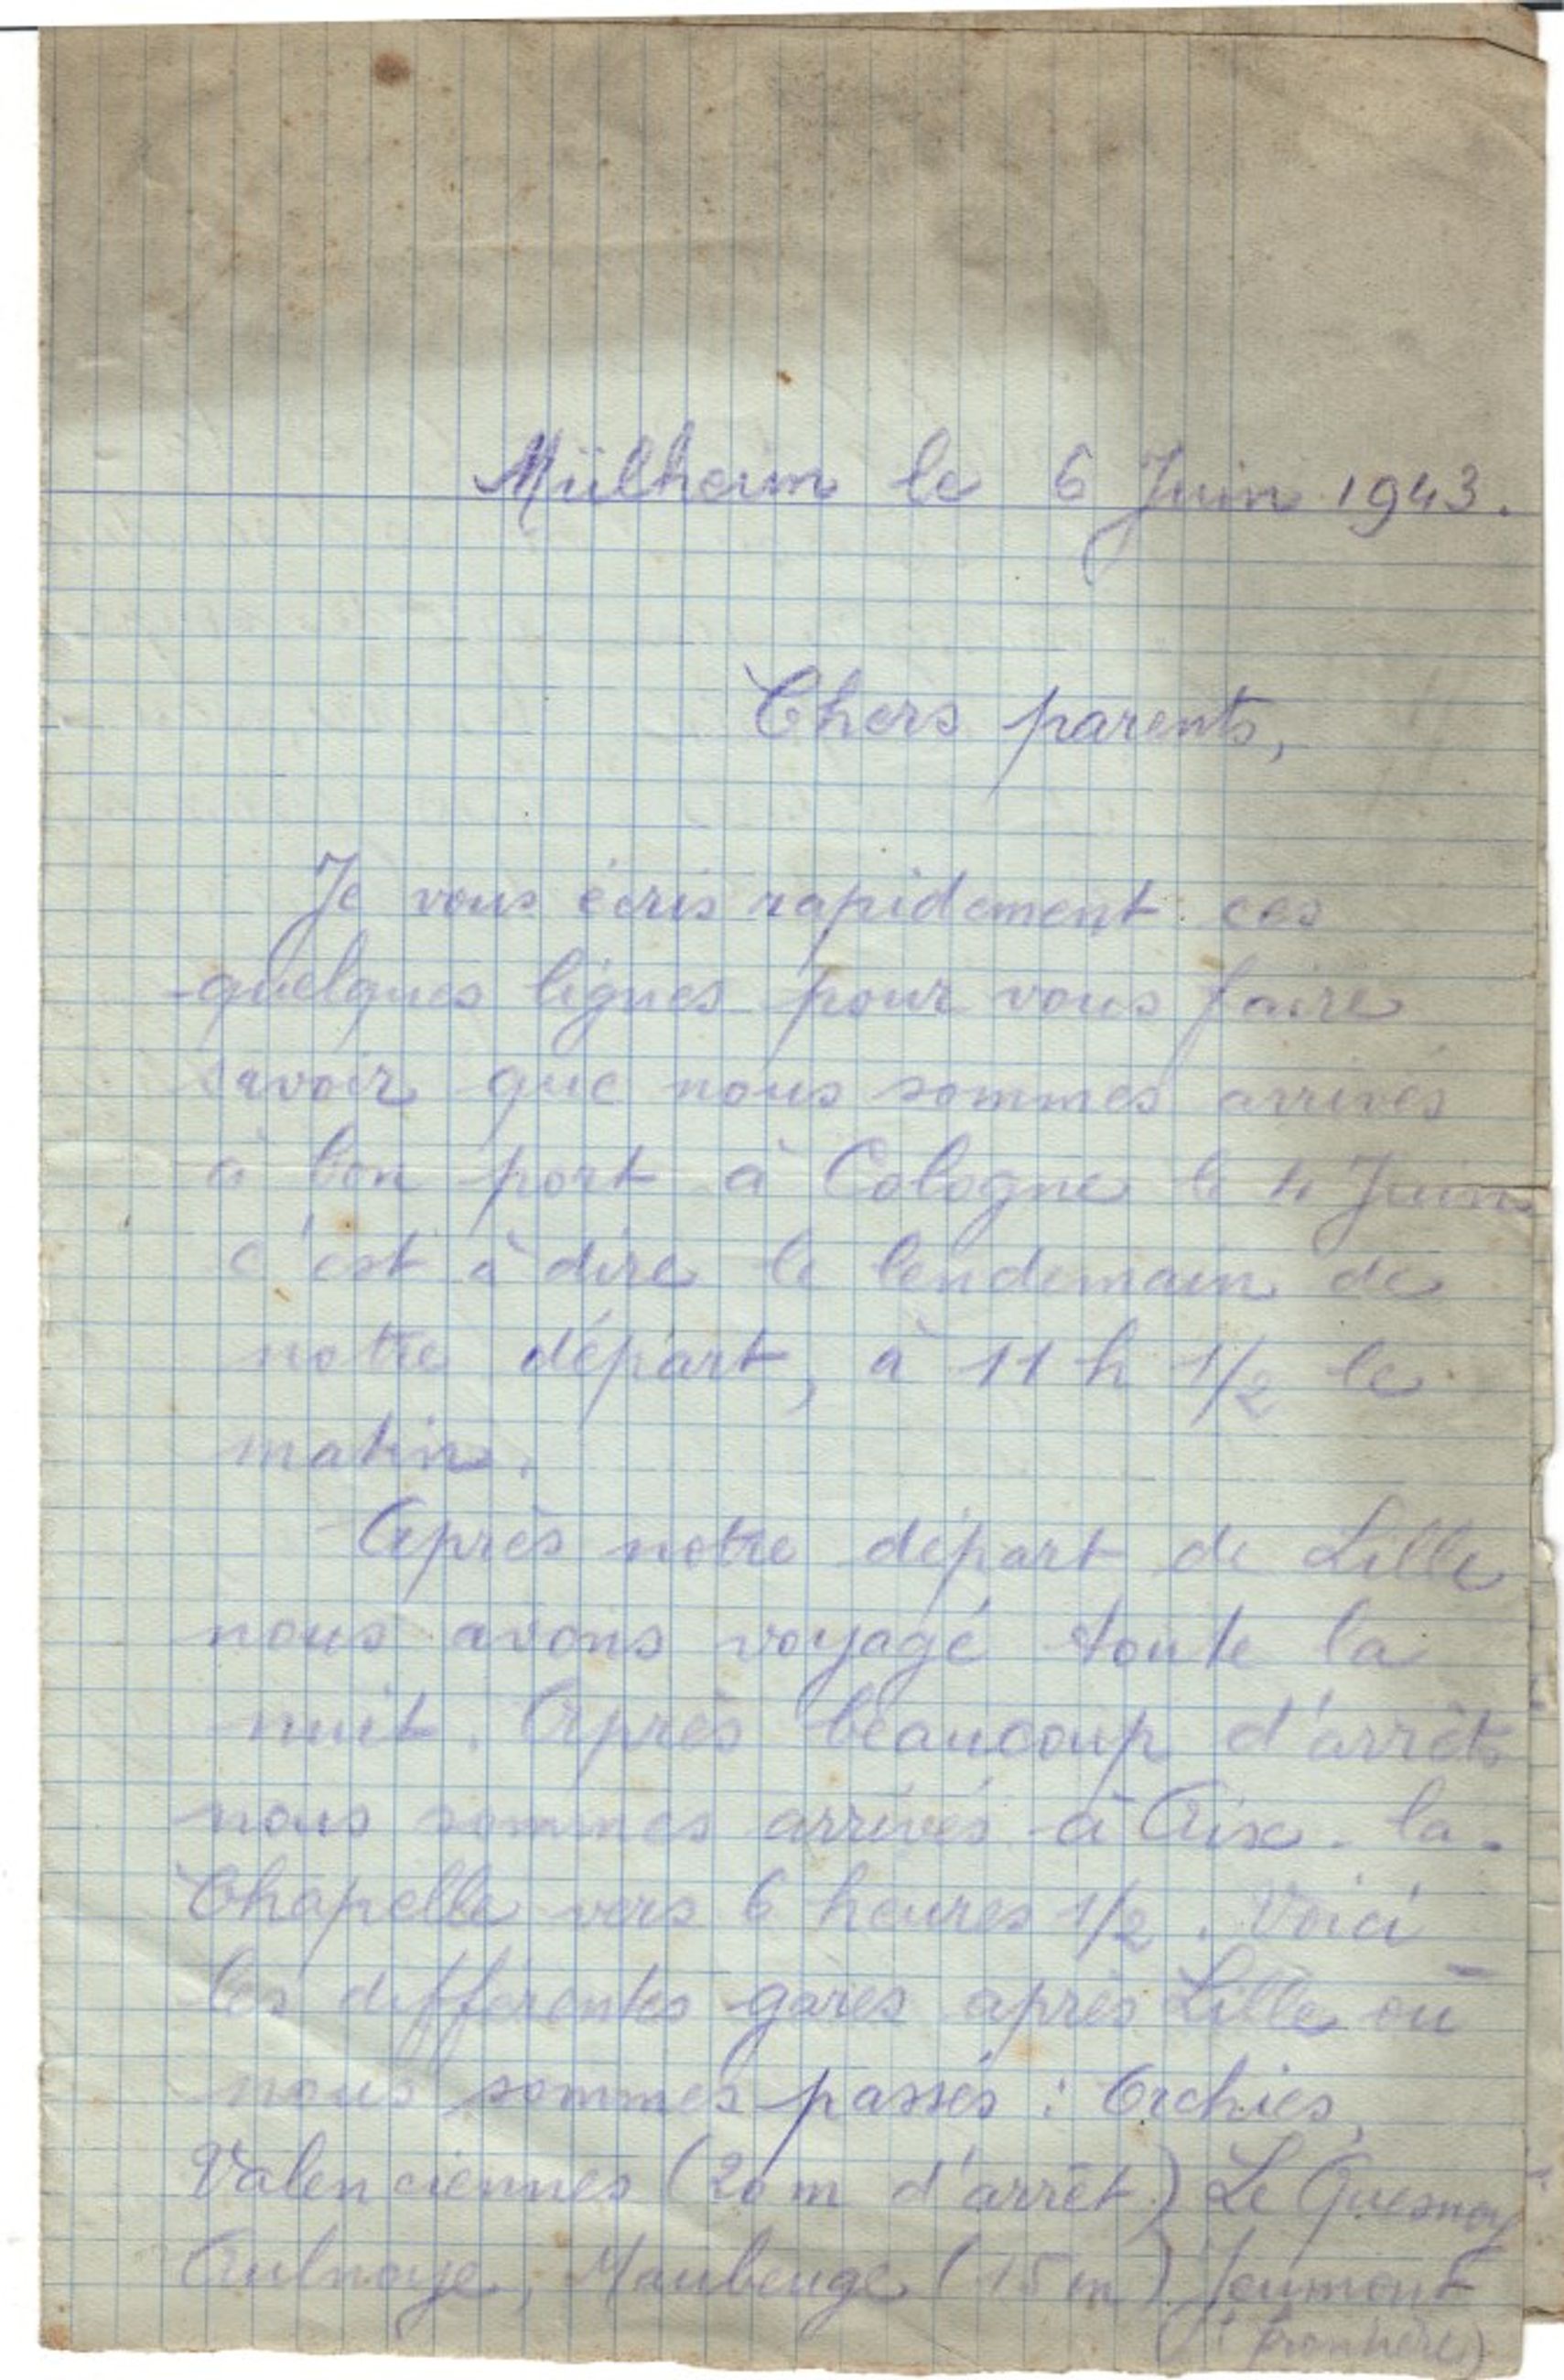 Mülheim le 6 Juin 1943.
Chers parents,
Je vous écris rapidement ces
quelques lignes pour vous faire
savoir que nous sommes arrivés
à bon port à Cologne le 4 Juin
c'est à dire le lendemain de
notre départ, à 11 h 1/2 le
matin.
Après notre départ de Lille
nous avons voyagé toute la
nuit. Après beaucoup d'arrêts
nous sommes arrivés à Aix-la-
Chapelle vers 6 heures 1/2. Voici
les différentes gares après Lille où
nous sommes passés : Orchies,
Valenciennes (20 m d'arrêt.) Le Quesnoy
Aulnoye, Maubeuge (15 m) Jeumont
frontière)